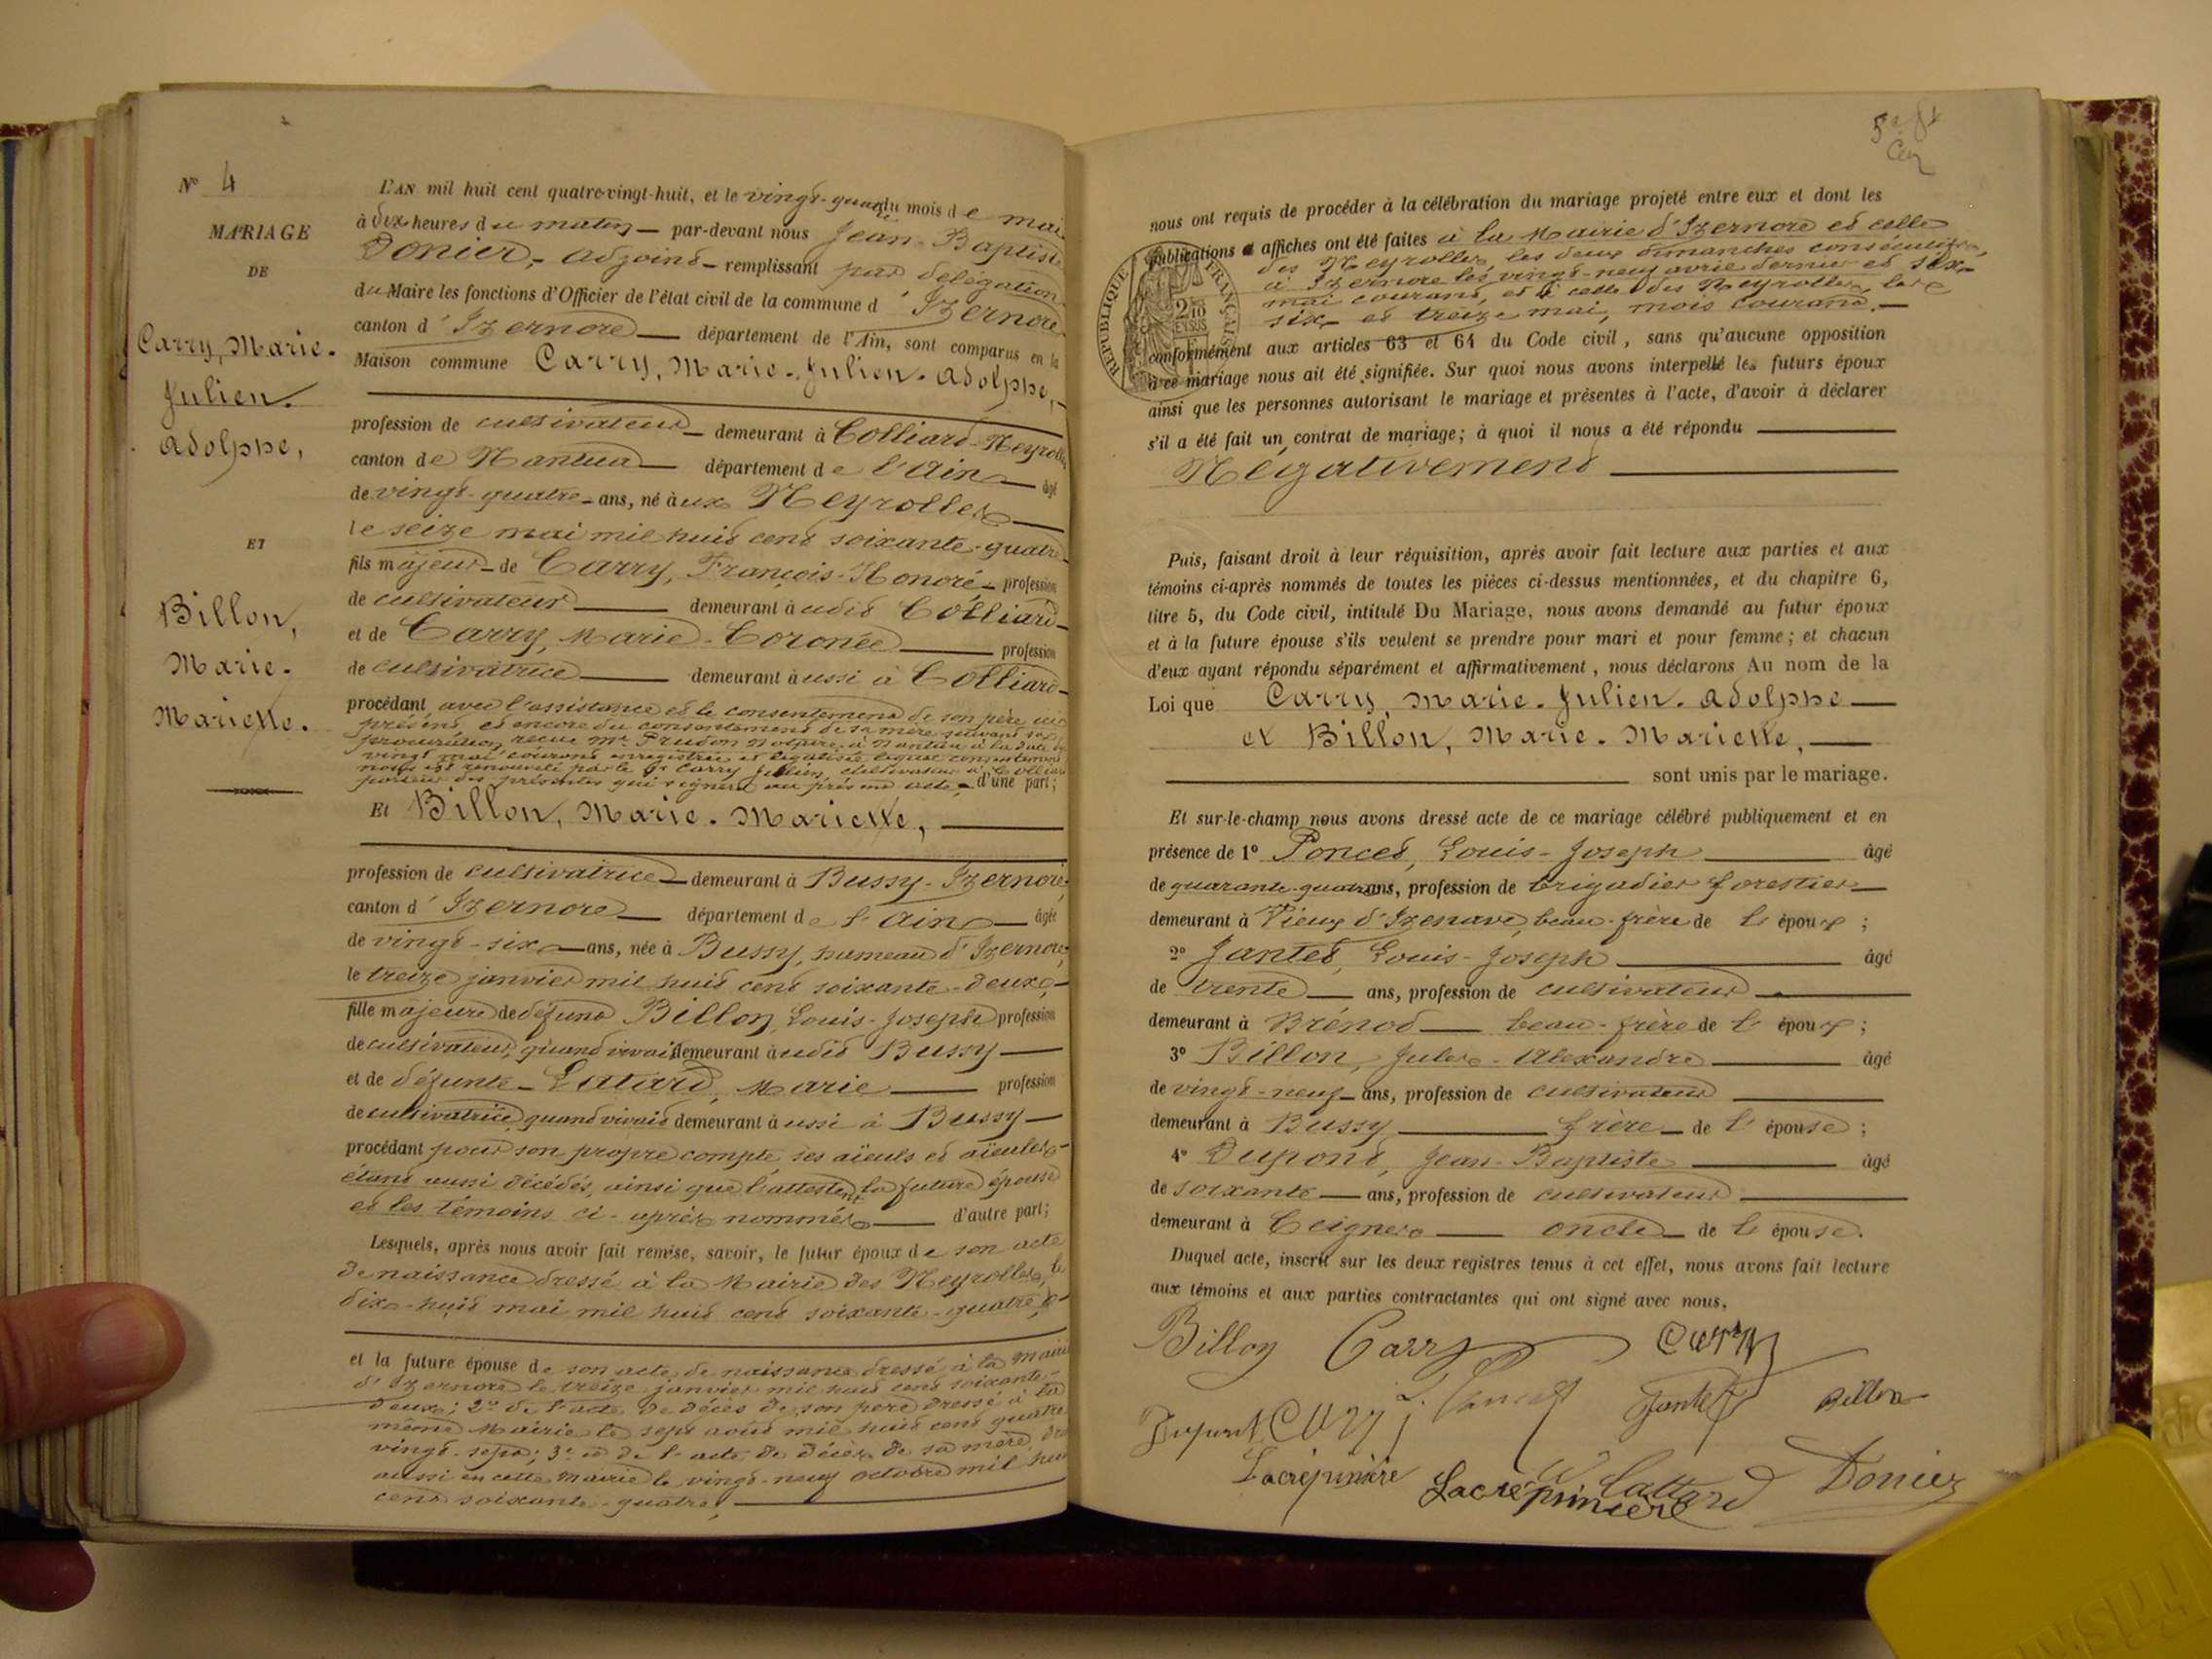 N° 4
MARIAGE
DE
Carry, Marie.
Julien.
Adolphe,
ET
Billon,
Marie.
Mariette.
L'AN mil huit cent quatre-vingt-huit, et le vingt-quatre du mois de mai
à dix heures du matin — par-devant nous Jean-Baptiste
Donier, adjoint — remplissant par délégation
du Maire les fonctions d'Officier de l'état civil de la commune d'Izernore
canton d'Izernore — département de l'Ain, sont comparus en la
Maison commune Carry, Marie-Julien-Adolphe,
profession de cultivateur — demeurant à Colliard-Neyrolles
canton de Nantua — département de l'Ain — âgé
de vingt-quatre ans, né aux Neyrolles —
le seize mai mil huit cent soixante-quatre
fils majeur de Carry, François-Honoré — profession
de cultivateur — demeurant audit Colliard —
et de Carry, Marie-Coronée — profession
de cultivatrice — demeurant aussi à Colliard —
procédant avec l'assistance et le consentement de son père ici
présent et encore du consentement de sa mère suivant sa
procuration reçue Me Prudon Notaire à Nantua à la date du
vingt mai courant enregistrée et légalisée lequel consentement
nous est renouvelé par le Sr Carry Julien, cultivateur à Colliard
porteur des présentes qui signera au présent acte — d'une part;
Et Billon, Marie. Mariette, —
profession de cultivatrice — demeurant à Bussy-Izernore,
canton d'Izernore — département de l'Ain — âgée
de vingt-six — ans, née à Bussy, hameau d'Izernore,
le treize janvier mil huit cent soixante-deux, —
fille majeure de défunt Billon, Louis-Joseph profession
de cultivateur, quand vivait demeurant audit Bussy —
et de défunte — Latard, Marie — profession
de cultivatrice quand vivait demeurant aussi à Bussy —
procédant pour son propre compte ses aïeuls et aïeules
étant aussi décédés, ainsi que l'attestent la future épouse
et les témoins ci-après nommés — d'autre part;
Lesquels, après nous avoir fait remise, savoir, le futur époux de son acte
de naissance dressé à la Mairie des Neyrolles, le
dix-huit mai mil huit cent soixante-quatre,
et la future épouse de son acte de naissance dressé à la mairie
d'Izernore le treize janvier mil huit cent soixante-
deux; 2° de l'acte de décès de son père dressé à la
même Mairie le sept août mil huit cent quatre
vingt-sept; 3° et de l'acte de décès de sa mère
aussi en cette Mairie le vingt-neuf octobre mil huit
cent soixante-quatre, —
nous ont requis de procéder à la célébration du mariage projeté entre eux et dont les
publications et affiches ont été faites à la Mairie d'Izernore et celle
des Neyrolles les deux dimanches consécutifs,
à Izernore les vingt-neuf avril dernier et six
mai courant, et à celle des Neyrolles, les
six et treize mai, mois courant. —
conformément aux articles 63 et 64 du Code civil, sans qu'aucune opposition
à ce mariage nous ait été signifiée. Sur quoi nous avons interpellé les futurs époux
ainsi que les personnes autorisant le mariage et présentes à l'acte, d'avoir à déclarer
s'il a été fait un contrat de mariage; à quoi il nous a été répondu —
Négativement —
RÉPUBLIQUE FRANÇAISE
2/10 EN SUS
Puis, faisant droit à leur réquisition, après avoir fait lecture aux parties et aux
témoins ci-après nommés de toutes les pièces ci-dessus mentionnées, et du chapitre 6,
titre 5, du Code civil, intitulé Du Mariage, nous avons demandé au futur époux
et à la future épouse s'ils veulent se prendre pour mari et pour femme; et chacun
d'eux ayant répondu séparément et affirmativement, nous déclarons Au nom de la
Loi que Carry, Marie-Julien-Adolphe —
et Billon, Marie. Mariette, —
sont unis par le mariage.
Et sur-le-champ nous avons dressé acte de ce mariage célébré publiquement et en
présence de 1° Poncet, Louis-Joseph — âgé
de quarante-quatre ans, profession de brigadier forestier —
demeurant à Vieux d'Izenave, beau-frère de l'époux;
2° Jantet, Louis-Joseph — âgé
de trente — ans, profession de cultivateur —
demeurant à Brénod — beau-frère de l'époux;
3° Billon, Jules-Alexandre — âgé
de vingt-neuf — ans, profession de cultivateur —
demeurant à Bussy — frère — de l'épouse;
4° Dupont, Jean-Baptiste — âgé
de soixante — ans, profession de cultivateur —
demeurant à Ceignes — oncle — de l'épouse.
Duquel acte, inscrit sur les deux registres tenus à cet effet, nous avons fait lecture
aux témoins et aux parties contractantes qui ont signé avec nous,
Billon Carry Carry
Dupont Carry Poncet Jantet Billon
Lacrépinière Lacrépinière Lattard Donier